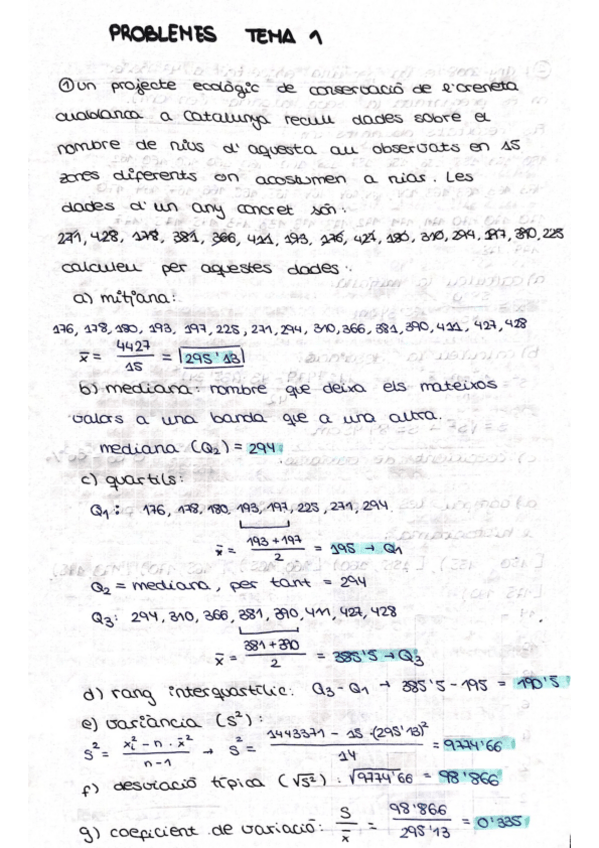 PROBLEMES TEMA 1
① un projecte ecològic de conservació de l'oreneta
cuablanca a Catalunya recull dades sobre el
nombre de nius d'aquesta au observats en 15
zones diferents on acostumen a niar. Les
dades d'un any concret són:
271, 428, 178, 381, 366, 411, 193, 176, 427, 180, 310, 294, 197, 390, 225
calculeu per aquestes dades:
a) mitjana:
176, 178, 180, 193, 197, 225, 271, 294, 310, 366, 381, 390, 411, 427, 428
x̄ = 4427 / 15 = 295'13
b) mediana: nombre que deixa els mateixos
valors a una banda que a una altra.
mediana (Q₂) = 294
c) quartils:
Q₁: 176, 178, 180, 193, 197, 225, 271, 294
x̄ = 193 + 197 / 2 = 195 → Q₁
Q₂ = mediana, per tant = 294
Q₃: 294, 310, 366, 381, 390, 411, 427, 428
x̄ = 381 + 390 / 2 = 385'5 → Q₃
d) rang interquartílic: Q₃ - Q₁ → 385'5 - 195 = 190'5
e) variància (S²):
S² = xᵢ² - n · x̄² / n - 1 → S² = 1443371 - 15 · (295'13)² / 14 = 9774'66
f) desviació típica (√S²): √9774'66 = 98'866
g) coeficient de variació: S / x̄ = 98'866 / 295'13 = 0'335